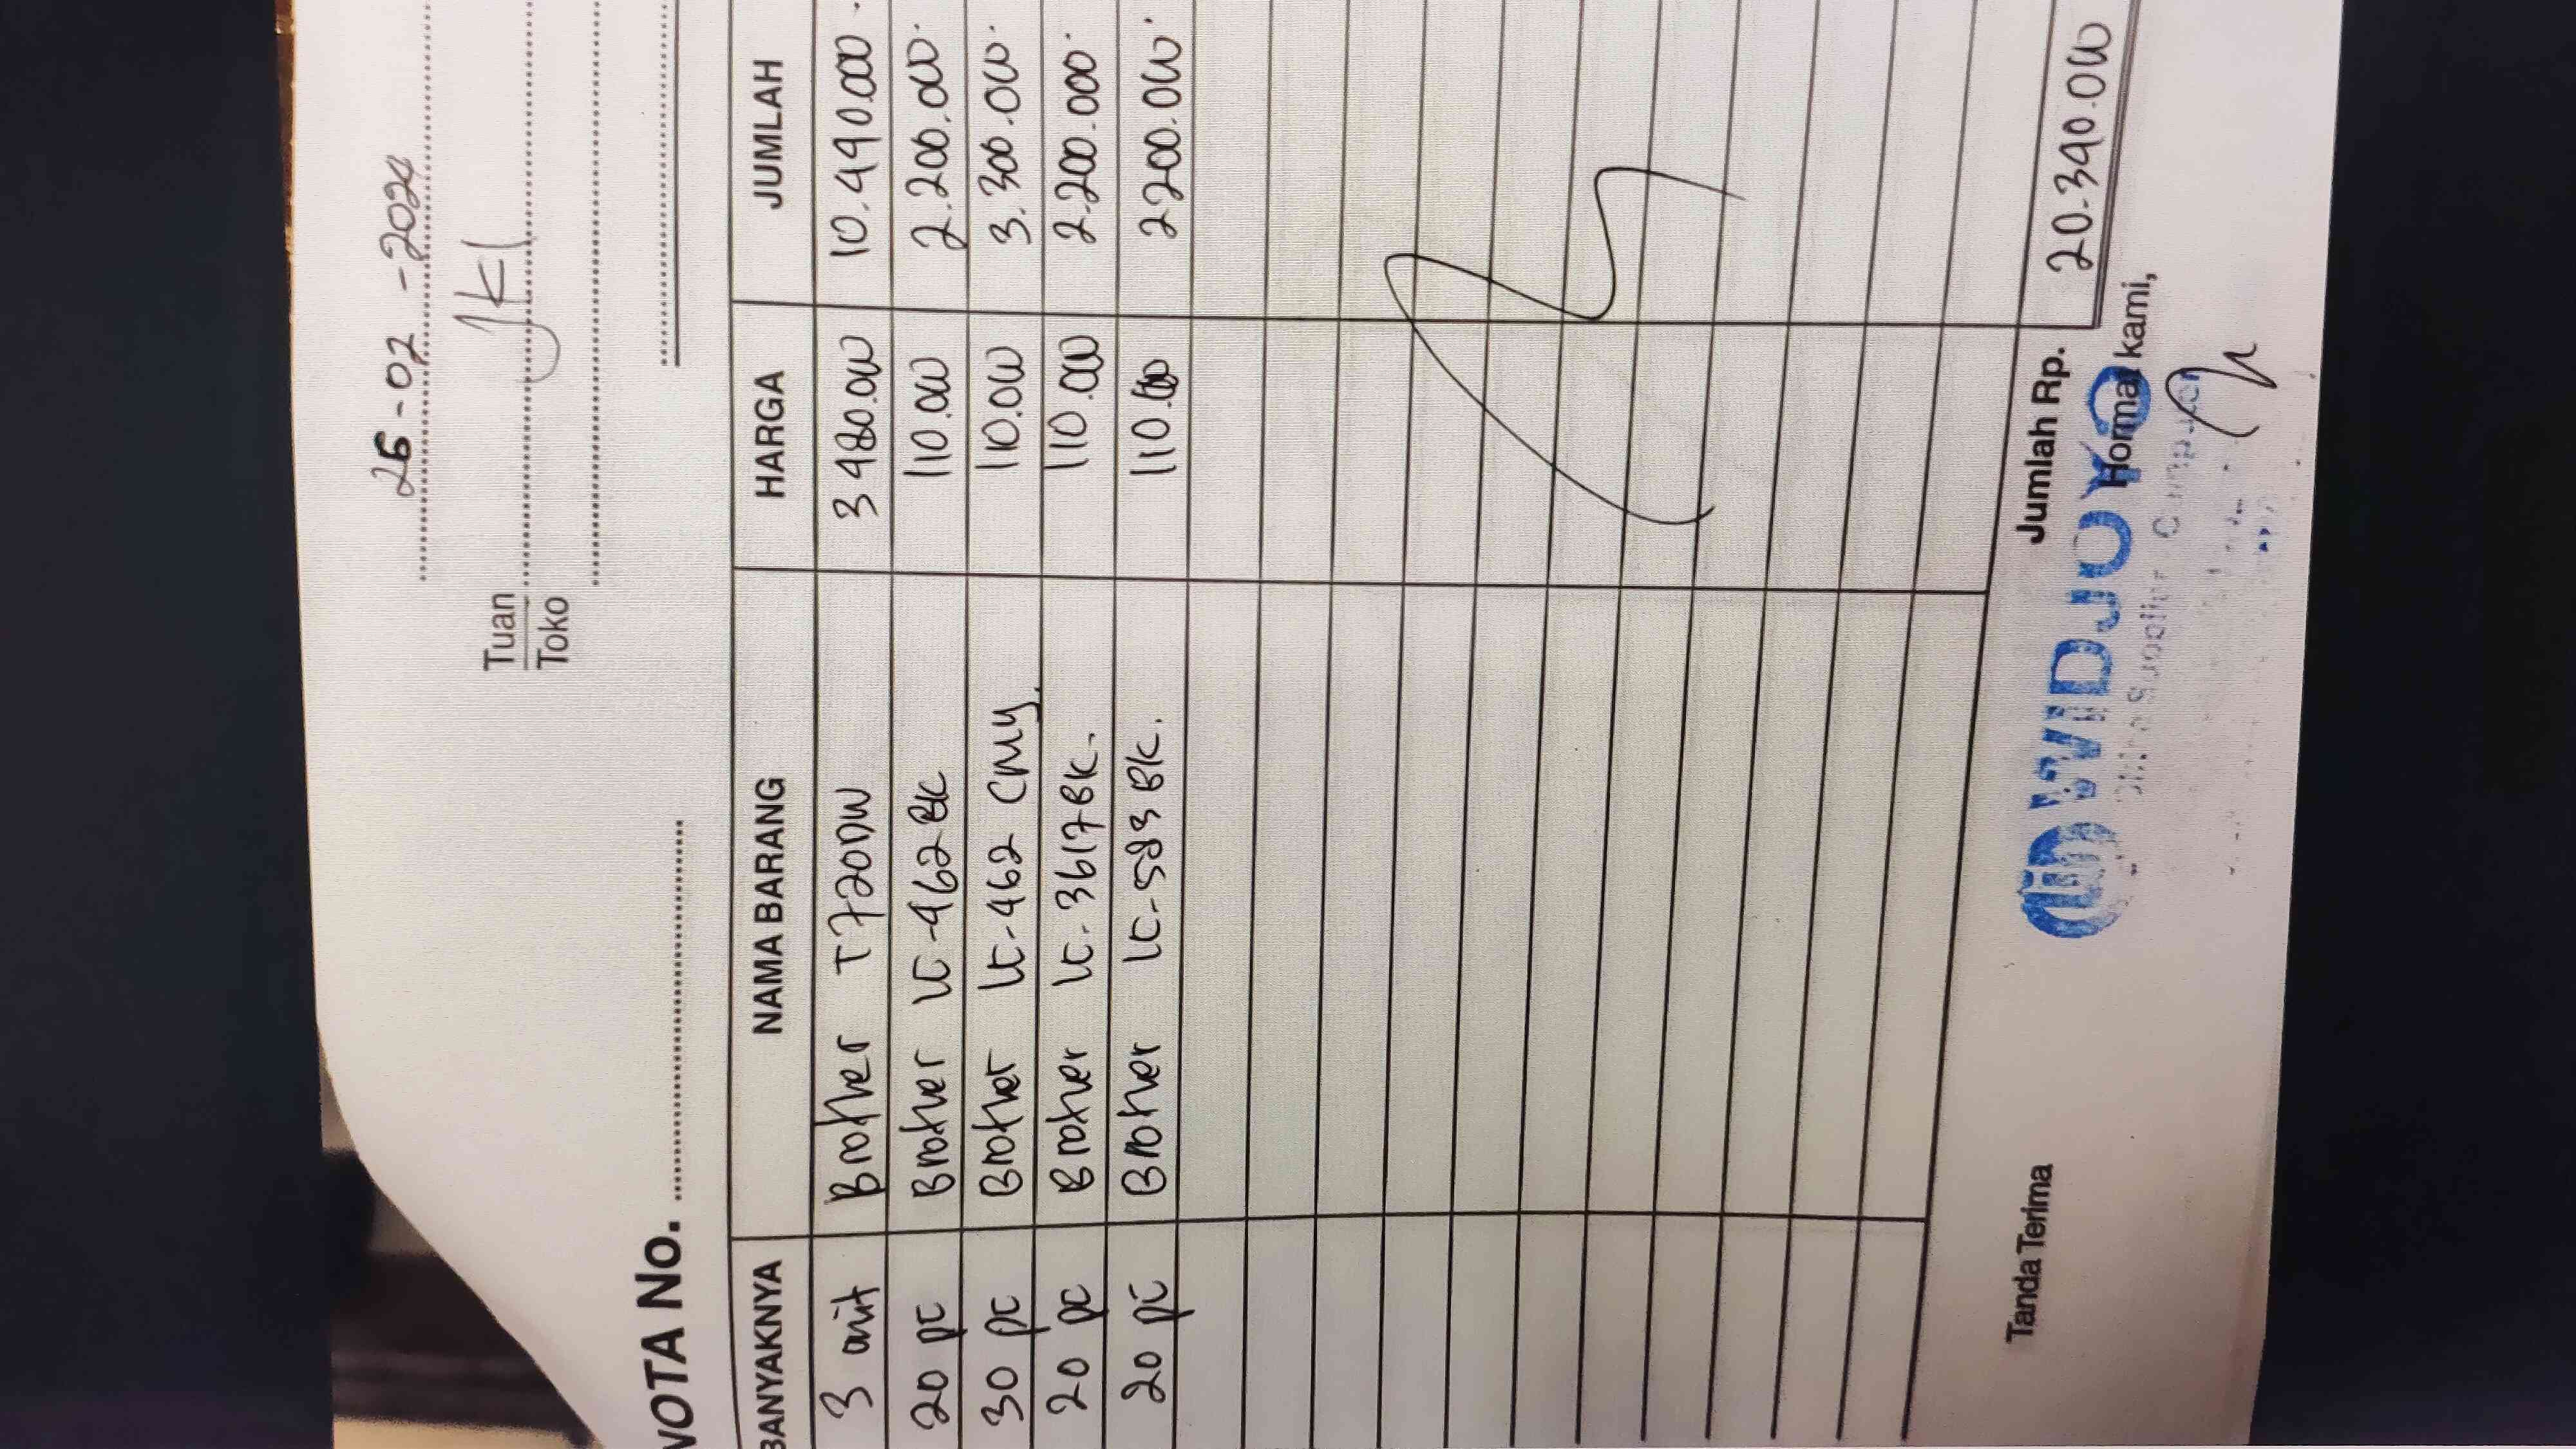 26-02-2024
Tuan
Toko
JKl
NOTA No.
BANYAKNYA NAMA BARANG HARGA JUMLAH
3 unit Brother T720DW 3480.000 10.440.000
20 pc Brother LC-462BK 110.000 2.200.000
30 pc Brother LC-462 CMY. 110.000 3.300.000
20 pc Brother LC-3617BK. 110.000 2.200.000
20 pc Brother LC-583BK. 110.000 2200.000
Jumlah Rp. 20.340.000
Tanda Terima Hormat kami,
WIDJOYO